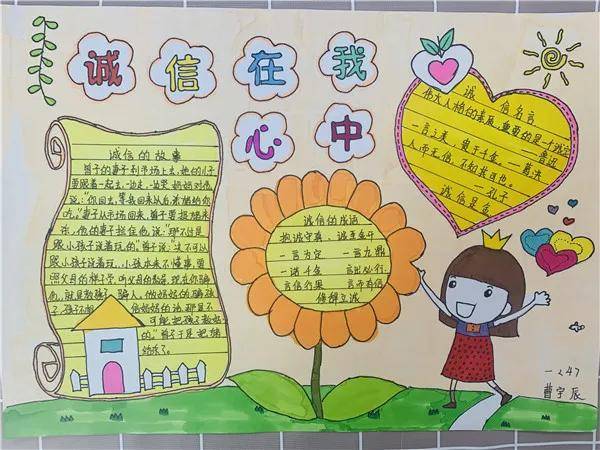 诚信在我
心中
诚信的故事
曾子的妻子到市场上去,他的儿子
要跟着一起去,一边走,一边哭。妈妈对他
说:“你回去,等我回来以后,杀猪给你
吃。”妻子从市场回来,曾子要捉猪来
杀,他的妻子拦住他说:“那不过是
跟小孩子说着玩的。”曾子说:“决不可以
跟小孩子说着玩。小孩本来不懂事,要
照父母的样子学,听父母的教导。现在你骗
他,就是教孩子骗人。做妈妈的骗孩
子,孩子不相信妈妈的话,那是不
可能把孩子教好
的。”曾子于是把猪
诚信的成语
抱诚守真、诚至金开
一言为定 一言九鼎
一诺千金 言出必行
言信行果 言而有信
修辞立诚
诚信名言
一言之美,贵于千金。——葛洪
人而无信,不知其可也。
——孔子
诚信是金
一247
曹宇辰